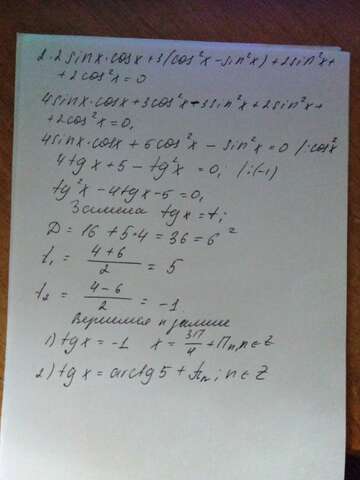 2·2sinx·cosx+3(cos²x-sin²x)+2sin²x+
+2cos²x=0
4sinx·cosx+3cos²x-3sin²x+2sin²x+
+2cos²x=0,
4sinx·cosx+5cos²x-sin²x=0 /:cos²x
4tgx+5-tg²x=0; /:(-1)
tg²x-4tgx-5=0,
Замина tgx=t;
D=16+5·4=36=6²
t₁=(4+6)/2=5
t₂=(4-6)/2=-1
Вернимся к замине
1) tgx=-1 x=3П/4+Пn, n∈Z
2) tgx=arctg5+Пn; n∈Z